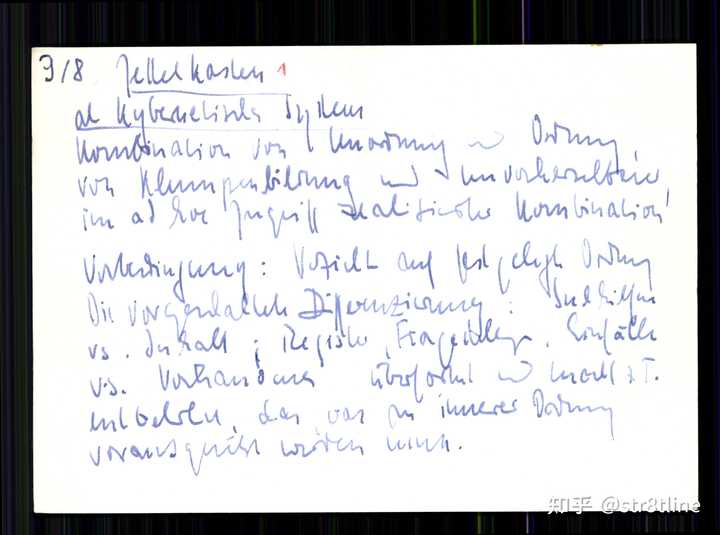 9/8 Zettelkasten 1
als kybernetisches System
Kombination von Unordnung u Ordnung,
von Klumpenbildung und unvorhersehbarer,
im ad hoc Zugriff realisierter Kombination
Vorbedingung: Verzicht auf festgelegte Ordnung
Die vorgeschaltete Differenzierung: Suchhilfen
vs. Inhalt; Register, Fragestellungen, Einfälle
vs. Vorhandenes überformt u macht z.T.
entbehrlich, das, was an innerer Ordnung
vorausgesetzt werden muß.
知乎 @str8tline